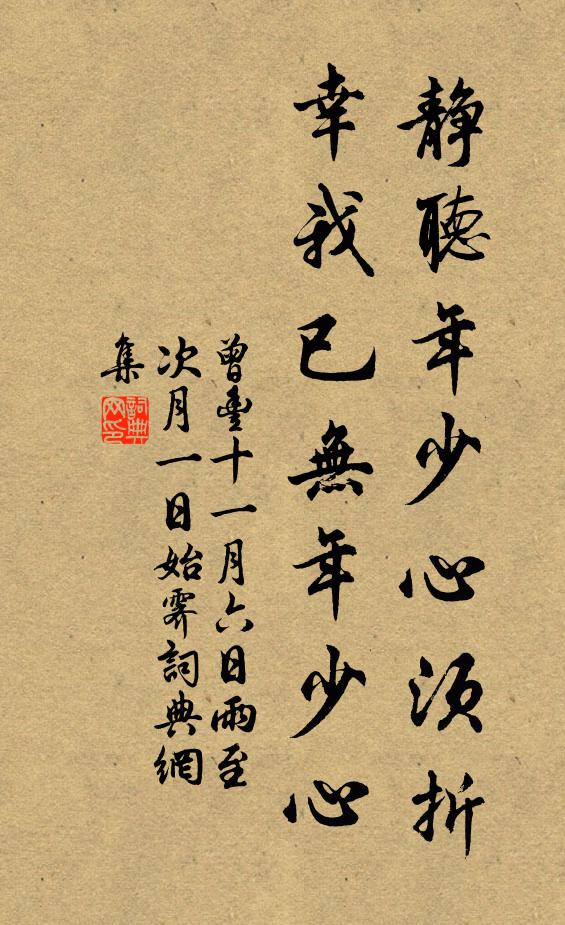 静聽年少心須折
幸我已無年少心
曾豐十一月六日雨至
次月一日始霽詞典網
集
詞典
网印